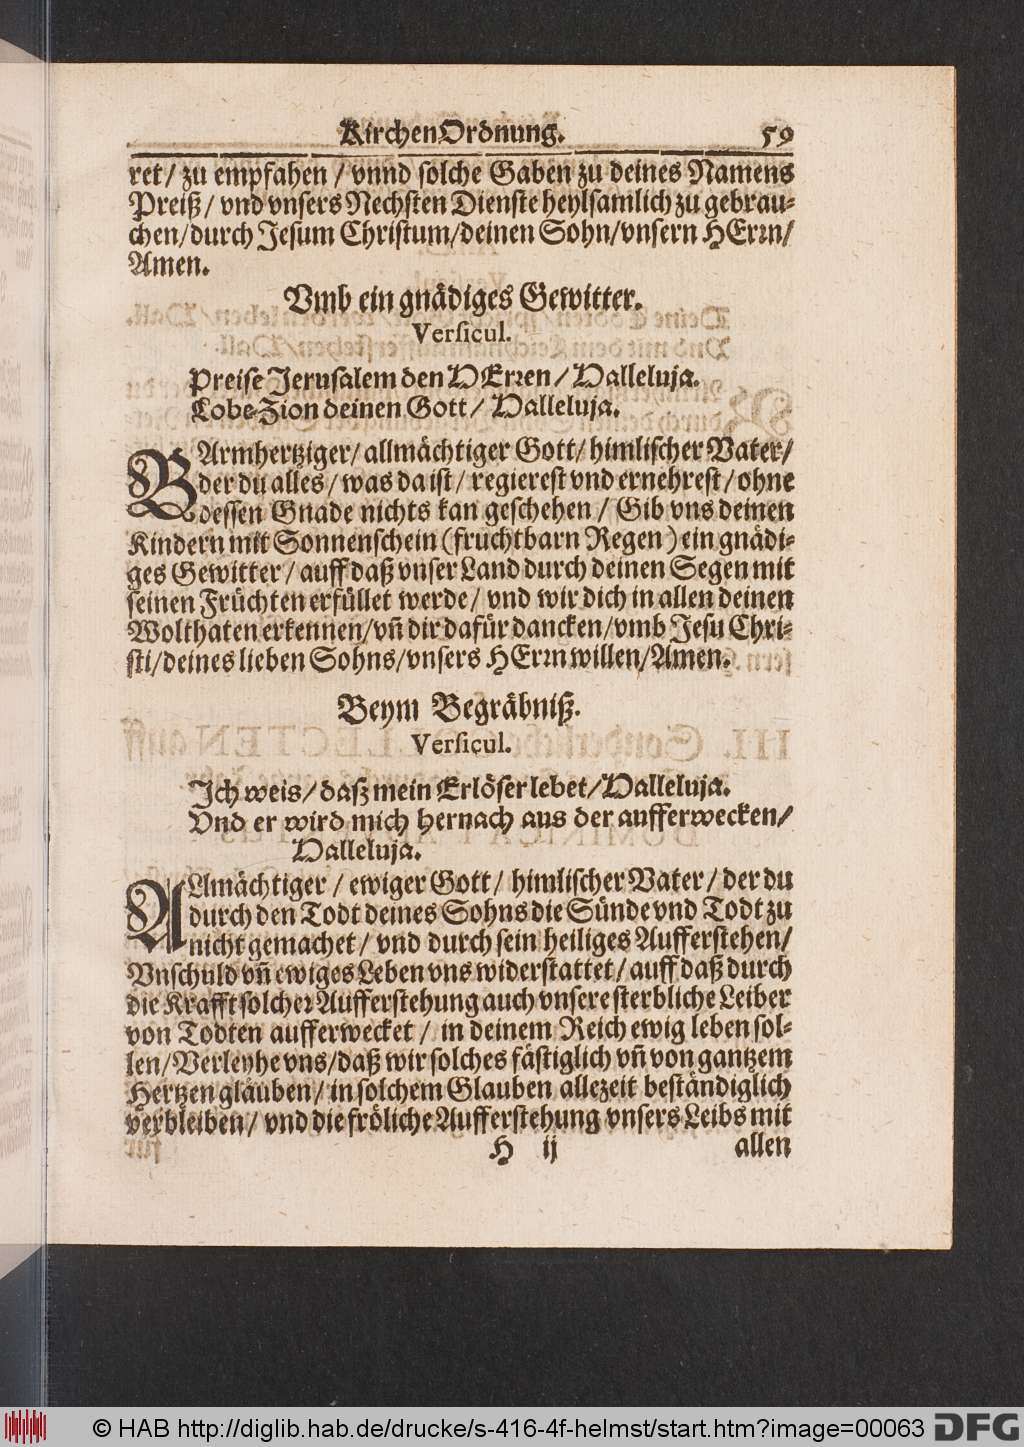 KirchenOrdnung. 59
ret/ zu empfahen / vnnd solche Gaben zu deines Namens
Preiß/ vnd vnsers Nechsten Dienste heylsamlich zu gebrau-
chen/durch Jesum Christum/deinen Sohn/vnsern HErrn/
Amen.
Vmb ein gnädiges Gewitter.
Versicul.
Preise Jerusalem den HErren/ Halleluja.
Lobe Zion deinen Gott/ Halleluja.
BArmhertziger/ allmächtiger Gott/ himlischer Vater/
der du alles/ was da ist/ regierest vnd ernehrest/ ohne
dessen Gnade nichts kan geschehen/ Gib vns deinen
Kindern mit Sonnenschein (fruchtbarn Regen) ein gnädi-
ges Gewitter/ auff daß vnser Land durch deinen Segen mit
seinen Früchten erfüllet werde/ vnd wir dich in allen deinen
Wolthaten erkennen/vñ dir dafür dancken/vmb Jesu Chri-
sti/deines lieben Sohns/vnsers HErrn willen/Amen.
Beym Begräbniß.
Versicul.
Ich weis/daß mein Erlöser lebet/Halleluja.
Vnd er wird mich hernach aus der aufferwecken/
Halleluja.
ALmächtiger / ewiger Gott/ himlischer Vater/ der du
durch den Todt deines Sohns die Sünde vnd Todt zu
nicht gemachet/ vnd durch sein heiliges Aufferstehen/
Vnschuld vñ ewiges Leben vns widerstattet/ auff daß durch
die Krafft solcher Aufferstehung auch vnsere sterbliche Leiber
von Todten aufferwecket/ in deinem Reich ewig leben sol-
len/Verleyhe vns/daß wir solches fästiglich vñ von gantzem
Hertzen gläuben/ in solchem Glauben allezeit beständiglich
verbleiben/ vnd die fröliche Aufferstehung vnsers Leibs mit
H ij allen
© HAB http://diglib.hab.de/drucke/s-416-4f-helmst/start.htm?image=00063 DFG